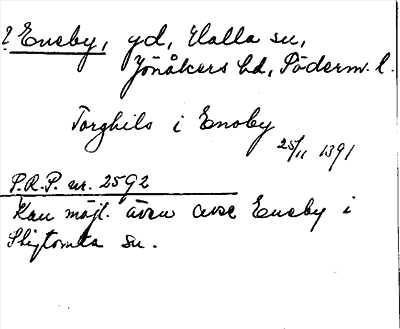 ? Eneby, yd, Halla sn,
Jönåkers hd, Söderm. l.
Torghils i Enoby
25/11 1391
P.R.P. nr. 2592
Kan möjl. även avse Eneby i
Stigtomta sn.